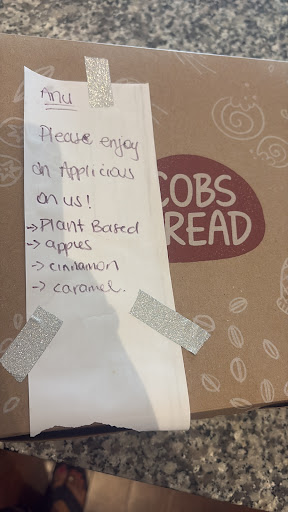 Anu
Please enjoy
an Applicious
on us!
-> Plant Based
-> apples
-> cinnamon
-> caramel.
COBS
READ